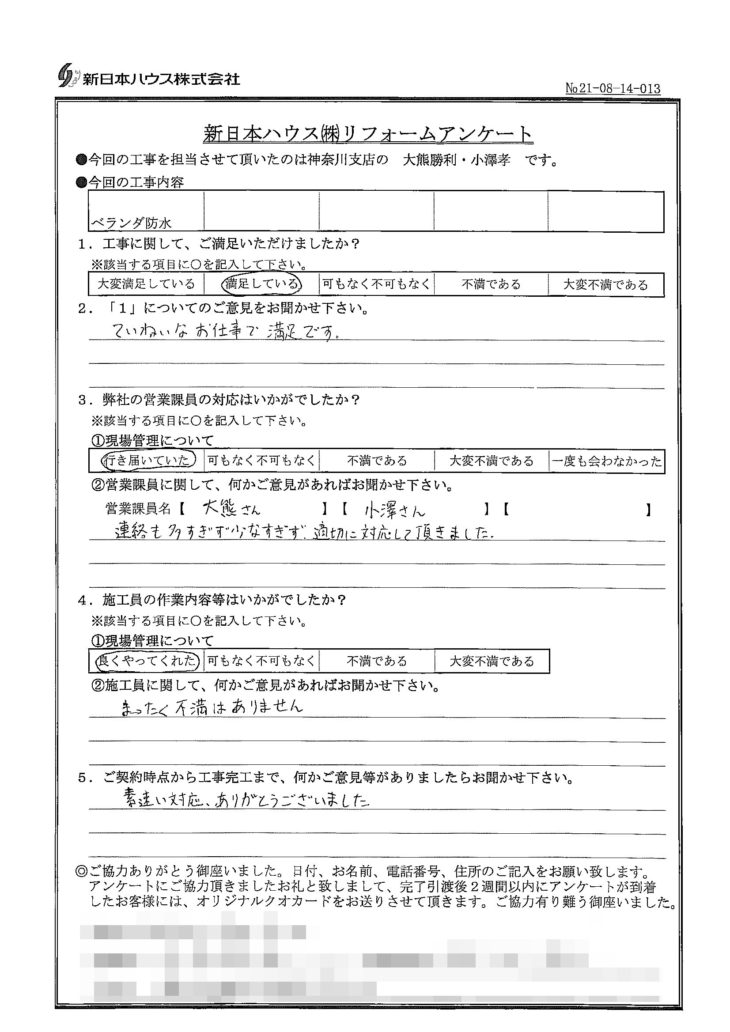 新日本ハウス株式会社
№21-08-14-013
新日本ハウス㈱リフォームアンケート
●今回の工事を担当させて頂いたのは神奈川支店の 大熊勝利・小澤孝 です。
●今回の工事内容
ベランダ防水
1．工事に関して、ご満足いただけましたか？
※該当する項目に○を記入して下さい。
大変満足している 満足している 可もなく不可もなく 不満である 大変不満である
2．「1」についてのご意見をお聞かせ下さい。
ていねいなお仕事で満足です.
3．弊社の営業課員の対応はいかがでしたか？
※該当する項目に○を記入して下さい。
①現場管理について
行き届いていた 可もなく不可もなく 不満である 大変不満である 一度も会わなかった
②営業課員に関して、何かご意見があればお聞かせ下さい。
営業課員名【 大熊さん 】【 小澤さん 】【 】
連絡も多すぎず少なすぎず、適切に対応して頂きました.
4．施工員の作業内容等はいかがでしたか？
※該当する項目に○を記入して下さい。
①現場管理について
良くやってくれた 可もなく不可もなく 不満である 大変不満である
②施工員に関して、何かご意見があればお聞かせ下さい。
まったく不満はありません
5．ご契約時点から工事完工まで、何かご意見等がありましたらお聞かせ下さい。
素速い対応、ありがとうございました
◎ご協力ありがとう御座いました。日付、お名前、電話番号、住所のご記入をお願い致します。
アンケートにご協力頂きましたお礼と致しまして、完了引渡後2週間以内にアンケートが到着
したお客様には、オリジナルクオカードをお送りさせて頂きます。ご協力有り難う御座いました。